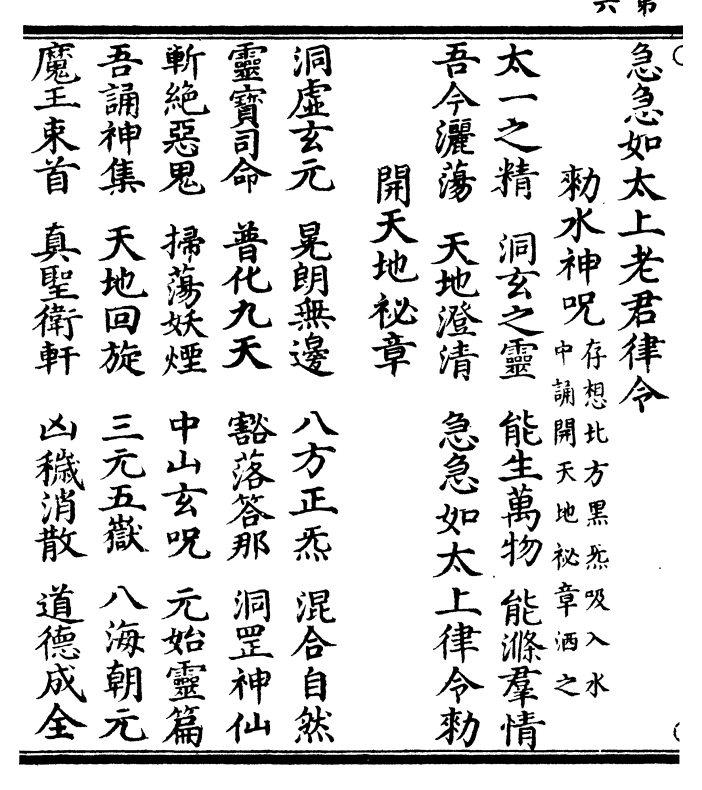 第六
急急如太上老君律令
勑水神呪存想北方黑炁吸入水
中誦開天地祕章洒之
太一之精　洞玄之靈　能生萬物　能滌羣情
吾今灑蕩　天地澄清　急急如太上律令勑
開天地祕章
洞虛玄元　晃朗無邊　八方正炁　混合自然
靈寶司命　普化九天　豁落答那　洞罡神仙
斬絕惡鬼　掃蕩妖煙　中山玄呪　元始靈篇
吾誦神集　天地回旋　三元五嶽　八海朝元
魔王束首　真聖衛軒　凶穢消散　道德成全